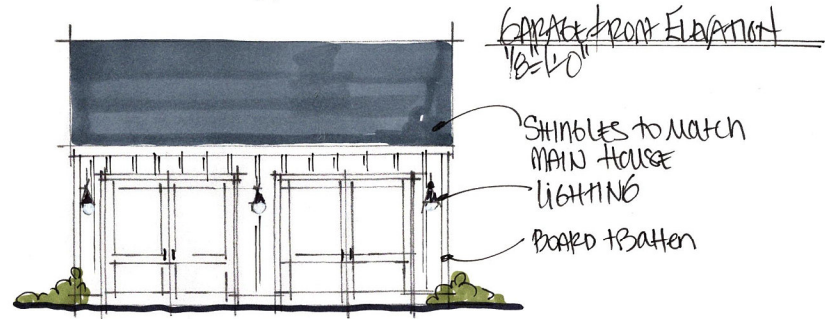 GARAGE FRONT ELEVATION
1/8"=1'-0"
SHINGLES TO MATCH
MAIN HOUSE
LIGHTING
BOARD + BATTEN